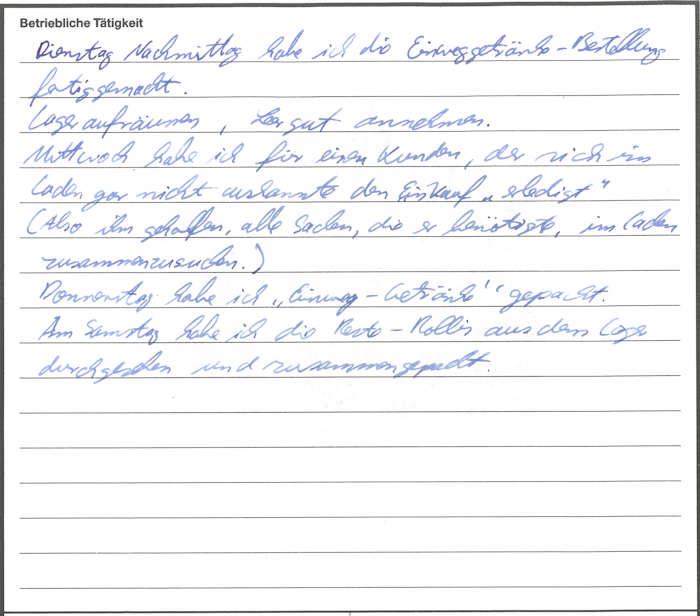 Betriebliche Tätigkeit
Dienstag Nachmittag habe ich die Einweggetränke-Bestellung
fertiggemacht.
Lager aufräumen, Leergut annehmen.
Mittwoch habe ich für einen Kunden, der sich im
Laden gar nicht auskannte den Einkauf „erledigt"
(Also ihm geholfen, alle Sachen, die er benötigte, im Laden
zusammenzusuchen.)
Donnerstag habe ich „Einweg-Getränke" gepackt.
Am Samstag habe ich die Reste-Rollis aus dem Lager
durchgesehen und zusammengepackt.